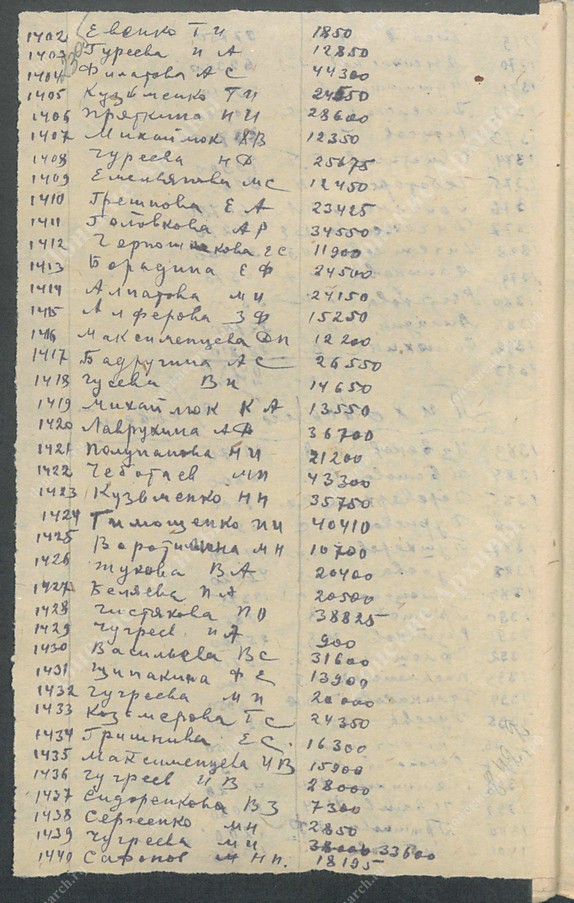 1402 Евенко Т И 1850
1403 Гуреева И А 12850
1404 Филатова А С 44300
1405 Кузьменко Т И 24550
1406 Пряткина Н И 28600
1407 Михайлюк В 12350
1408 Чуреева Н Ф 25675
1409 Емельянова М С 12450
1410 Грешнова Е А 23425
1411 Головкова А Р 34550
1412 Черношекова Е С 11900
1413 Борадина Е Ф 24500
1414 Алпатова М И 24150
1415 Алферова З Ф 15250
1416 Максименцева 12200
1417 Бадругина А С 26550
1418 Гусева В И 14650
1419 Михайлюк К А 13550
1420 Лаврухина А 36700
1421 Полупанова Н И 21200
1422 Чеботаев М П 43300
1423 Кузьменко Н Н 35750
1424 Тимощенко П И 40410
1425 Воротилина М Н 10700
1426 Жукова В А 20400
1427 Беляева П А 20500
1428 Чистякова П О 38825
1429 Чугреев И А 900
1430 Васильева В С 31600
1431 Щипакина Ф Е 13900
1432 Гугреева М П 20000
1433 Козьмерова Т С 24350
1434 Гришнива Е С. 16300
1435 Максименцева И В 15900
1436 Чугреев И В 28000
1437 Сидоренкова В З 7300
1438 Сергеенко М Н 2850
1439 Чугреева М И 33600
1440 Сафонов М Н П. 18195